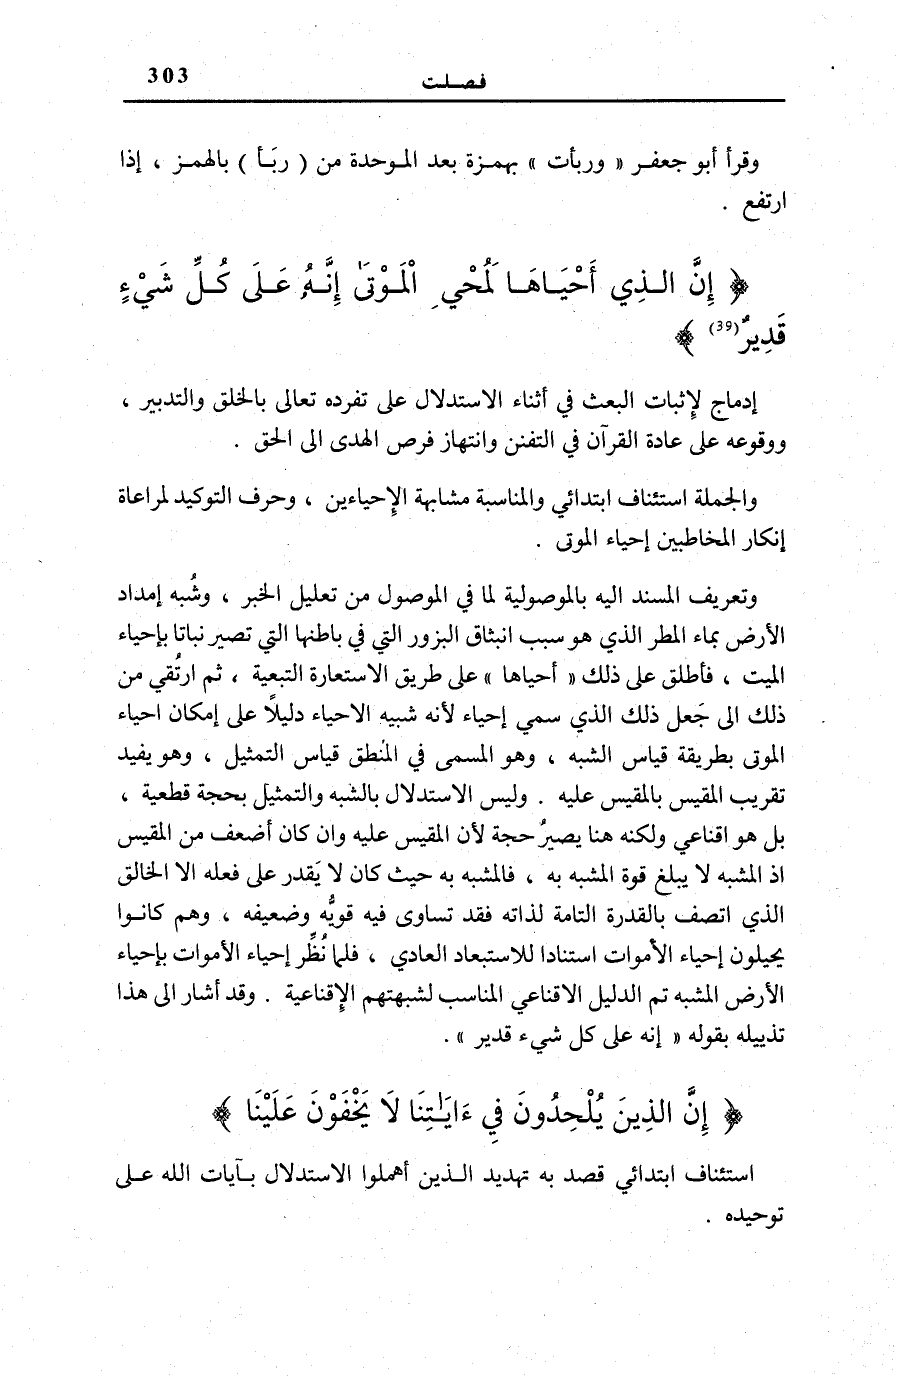 303
فصلت
وقرأ أبو جعفر « وربأت » بهمزة بعد الموحدة من ( ربَأ ) بالهمز ، إذا
ارتفع .
﴿ إِنَّ الذِي أَحْيَاهَا لَمُحْيِ الْمَوْتَىٰ إِنَّهُ عَلَى كُلِّ شَيْءٍ
قَدِيرٌ (39) ﴾
إدماج لإِثبات البعث في أثناء الاستدلال على تفرده تعالى بالخلق والتدبير ،
ووقوعه على عادة القرآن في التفنن وانتهاز فرص الهدى الى الحق .
والجملة استئناف ابتدائي والمناسبة مشابهة الإِحياءين ، وحرف التوكيد لمراعاة
إنكار المخاطبين إحياء الموتى .
وتعريف المسند اليه بالموصولية لما في الموصول من تعليل الخبر ، وشُبه إمداد
الأرض بماء المطر الذي هو سبب انبثاق البزور التي في باطنها التي تصير نباتا بإحياء
الميت ، فأطلق على ذلك « أحياها » على طريق الاستعارة التبعية ، ثم ارتُقي من
ذلك الى جَعل ذلك الذي سمي إحياء لأنه شبيه الاحياء دليلًا على إمكان احياء
الموتى بطريقة قياس الشبه ، وهو المسمى في المنطق قياس التمثيل ، وهو يفيد
تقريب المقيس بالمقيس عليه . وليس الاستدلال بالشبه والتمثيل بحجة قطعية ،
بل هو اقناعي ولكنه هنا يصيرُ حجة لأن المقيس عليه وان كان أضعف من المقيس
اذ المشبه لا يبلغ قوة المشبه به ، فالمشبه به حيث كان لا يَقدر على فعله الا الخالق
الذي اتصف بالقدرة التامة لذاته فقد تساوى فيه قويُّه وضعيفه ، وهم كانوا
يحيلون إحياء الأموات استنادا للاستبعاد العادي ، فلما نُظِّر إحياء الأموات بإحياء
الأرض المشبه تم الدليل الاقناعي المناسب لشبهتهم الإِقناعية . وقد أشار الى هذا
تذييله بقوله « إنه على كل شيء قدير » .
﴿ إِنَّ الذِينَ يُلْحِدُونَ فِي ءَايَـٰتِنَا لَا يَخْفَوْنَ عَلَيْنَا ﴾
استئناف ابتدائي قصد به تهديد الذين أهملوا الاستدلال بآيات الله على
توحيده .